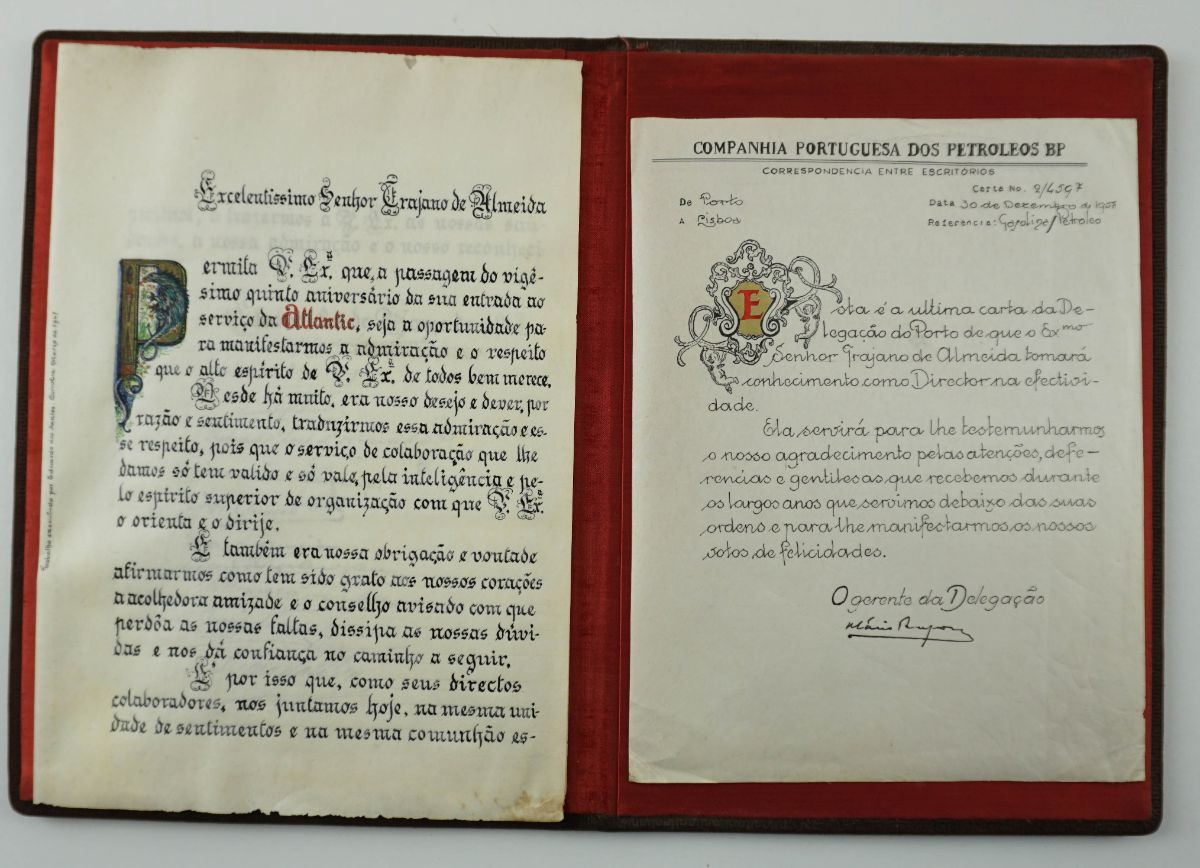 Excelentissimo Senhor Trajano de Almeida
Permita V. Exª. que, a passagem do vigê-
simo quinto aniversário da sua entrada ao
serviço da Atlantic, seja a oportunidade pa-
ra manifestarmos a admiração e o respeito
que o alto espírito de V. Exª. de todos bem merece.
Desde há muito, era nosso desejo e dever, por
razão e sentimento, traduzirmos essa admiração e es-
se respeito, pois que o serviço de colaboração que lhe
damos só tem valido e só vale, pela inteligência e pe-
lo espírito superior de organização com que V. Exª.
o orienta e o dirije.
E também era nossa obrigação e vontade
afirmarmos como tem sido grato aos nossos corações
a acolhedora amizade e o conselho avisado com que
perdôa as nossas faltas, dissipa as nossas dúvi-
das e nos dá confiança no caminho a seguir.
E' por isso que, como seus directos
colaboradores, nos juntamos hoje, na mesma uni-
dade de sentimentos e na mesma comunhão es-
Trabalho executado por Eduardo dos Santos
COMPANHIA PORTUGUESA DOS PETROLEOS BP
CORRESPONDENCIA ENTRE ESCRITÓRIOS
Carta No. 2/4597
De Porto
Data 30 de Dezembro
A Lisboa
Referencia: Gasolina/Petroleo
Esta é a ultima carta da De-
legação do Porto de que o Exmo
Senhor Trajano de Almeida tomará
conhecimento como Director na efectivi-
dade.
Ela servirá para lhe testemunharmos
o nosso agradecimento pelas atenções, defe-
rencias e gentilesas, que recebemos durante
os largos anos que servimos debaixo das suas
ordens e para lhe manifestarmos os nossos
votos, de felicidades.
O gerente da Delegação
Mário